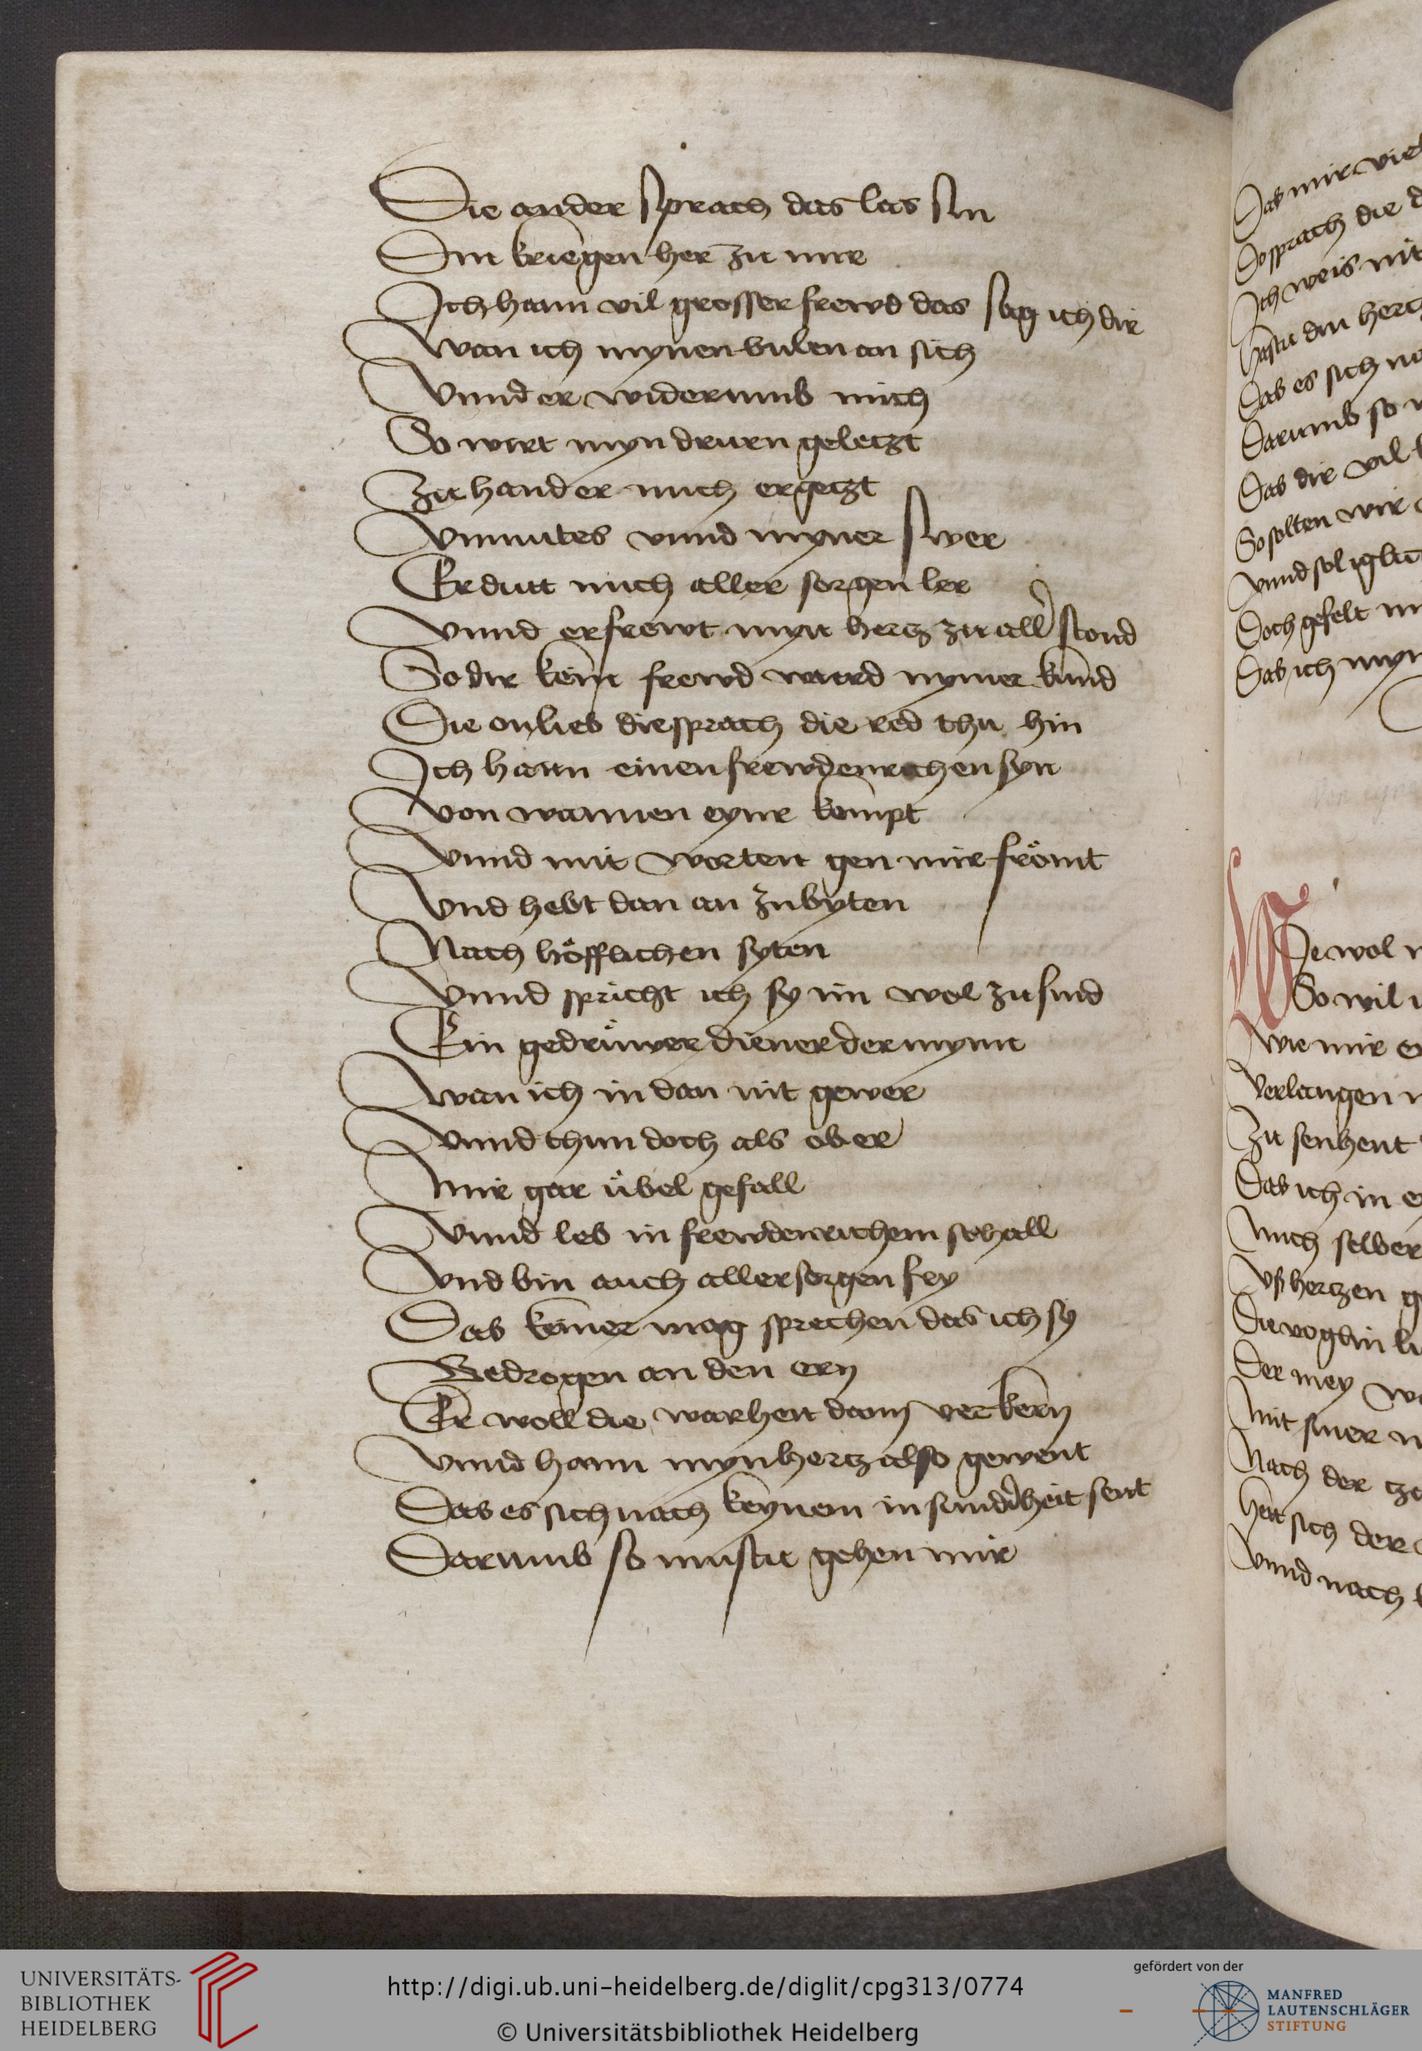 Die ander sprach das las sin
Din kriegen her zu mir
Ich hann vil grosser frewd das sag ich dir
Wan ich mynen bulen an sich
Vnnd er widerumb mich
So wirt myn druren geletzt
Zu hand er mich ergetzt
Vnmutes vnnd myner swer
Er dutt mich aller sorgen ler
Vnnd erfrewt myn hertz zu aller stond
So dir kein frewd ward nymer kund
Die on lieb die sprach die red thu hin
Ich hann einen frewdenrichen syn
Von wannen eynr kompt
Vnnd mit worten gen mir frömt
Vnd hebt dan an zu byten
Nach höfflichen syten
Vnnd spricht ich sy im wol zu sind
Ein gedrüwer diener der mynn
Wan ich in dan nit gewer
Vnnd thun doch als ob er
Mir gar übel gefall
Vnnd leb in frewdenrichem schall
Vnd bin auch aller sorgen fry
Das keiner mag sprechen das ich sy
Bedrogen an den ern
Er woll die warheit dann verkern
Vnnd hann myn hertz also gewent
Das es sich nach keynem in sunderheit sent
Darumb so mustu gehen mir
Das mir vie
So sprach die d
Ich weis nit
Hastu din hertz
Das es sich no
Darumb so
Das dir vil
So solten wir
Vnnd sol
Doch gefelt m
Das ich myn
Wie wol
So wil
Wie mir
Verlangen
Zu
Das ich in e
Mich selber
Vß hertzen g
Die voglin li
Der mey w
Mit siner
Nach der
Hett sich der
Vnnd nach
UNIVERSITÄTS-
BIBLIOTHEK
HEIDELBERG
http://digi.ub.uni-heidelberg.de/diglit/cpg313/0774
© Universitätsbibliothek Heidelberg
gefördert von der
MANFRED
LAUTENSCHLÄGER
STIFTUNG